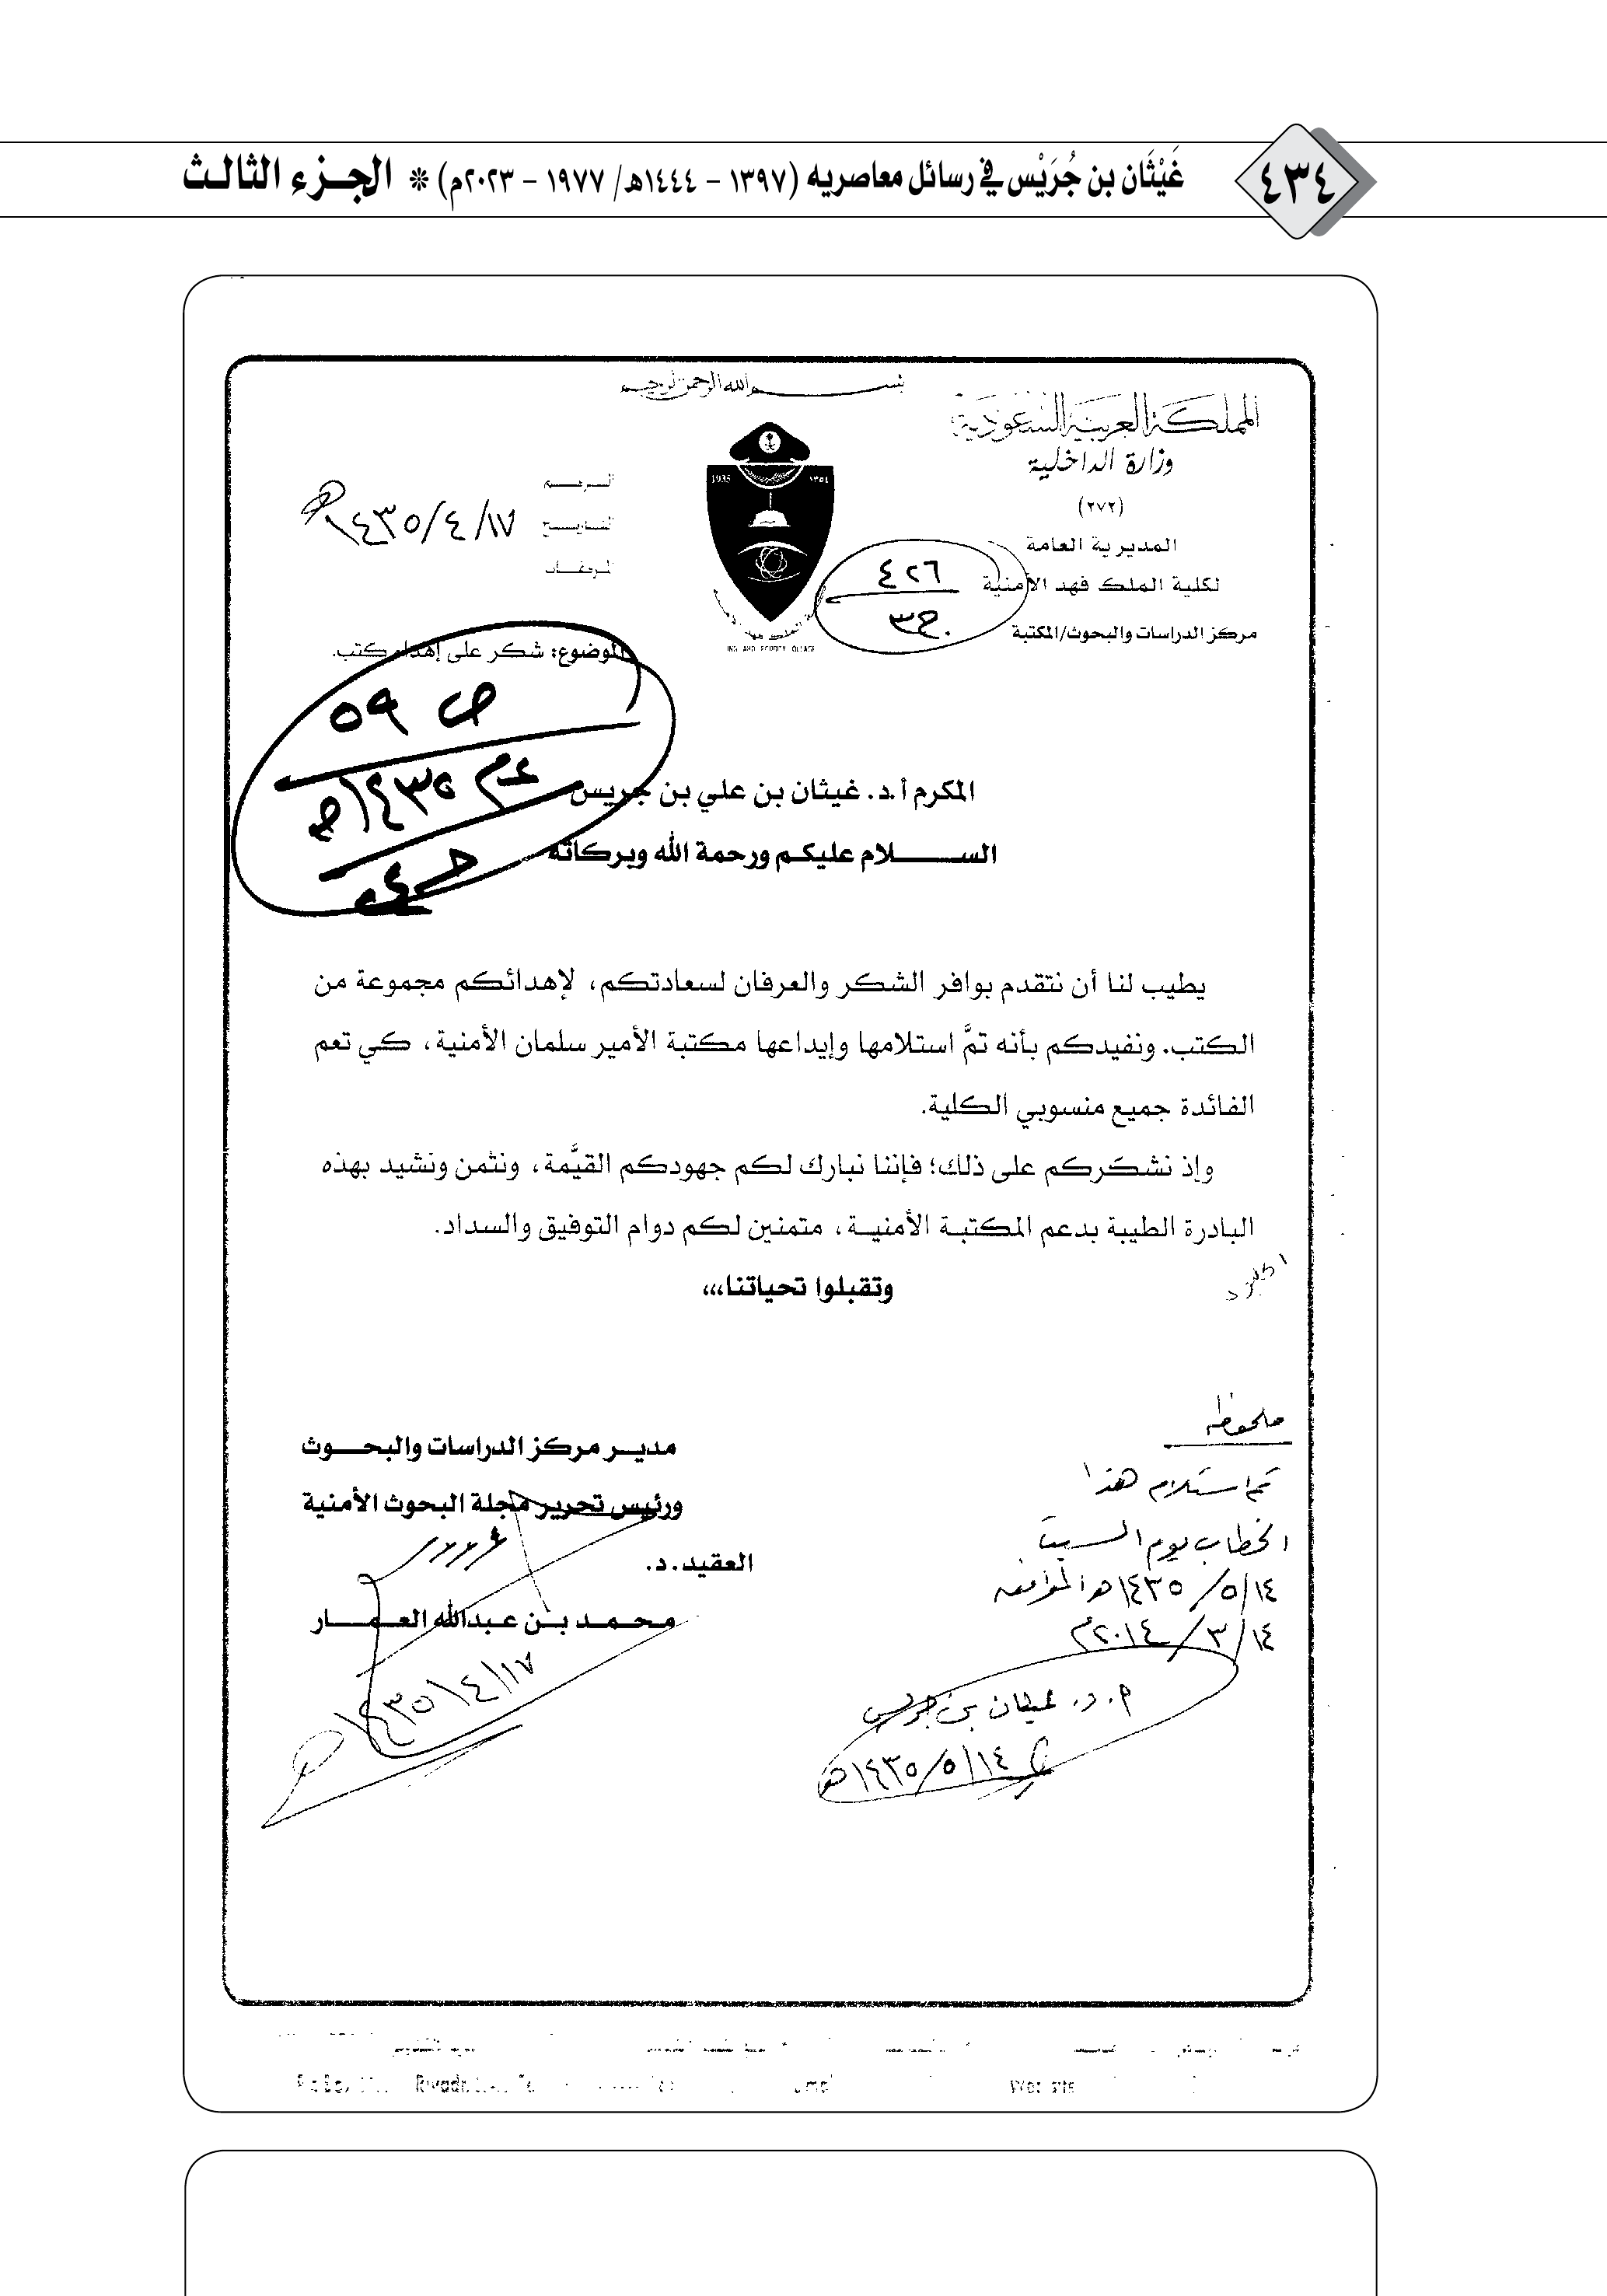 ٤٣٤
غَيْثَان بن جُرَيْس في رسائل معاصريه (١٣٩٧ - ١٤٤٤هـ/ ١٩٧٧ - ٢٠٢٣م) * الجزء الثالث
بسم الله الرحمن الرحيم
المملكة العربية السعودية
وزارة الداخلية
(٢٧٢)
المديرية العامة
لكلية الملك فهد الأمنية
مركز الدراسات والبحوث/المكتبة
٤٢٦
1935 ١٣٥٤
الرقم
التاريخ ١٤٣٥/٤/١٧هـ
المرفقات
الموضوع: شكر على إهداء كتب.
ص ٥٩
١٤٣٥هـ
المكرم أ.د. غيثان بن علي بن جريس
الســــلام عليكم ورحمة الله وبركاته
يطيب لنا أن نتقدم بوافر الشكر والعرفان لسعادتكم، لإهدائكم مجموعة من
الكتب. ونفيدكم بأنه تمَّ استلامها وإيداعها مكتبة الأمير سلمان الأمنية، كي تعم
الفائدة جميع منسوبي الكلية.
وإذ نشكركم على ذلك؛ فإننا نبارك لكم جهودكم القيَّمة، ونثمن ونشيد بهذه
البادرة الطيبة بدعم المكتبة الأمنية، متمنين لكم دوام التوفيق والسداد.
وتقبلوا تحياتنا،،،
مديـر مركز الدراسات والبحـــوث
ورئيس تحرير مجلة البحوث الأمنية
العقيد.د.
محمد بن عبدالله العمـــار
١٤٣٥/٤/١٧
ملحوظة
تم استلام هذا
الخطاب يوم السبت
١٤/٥/١٤٣٥هـ الموافق
١٤/٣/٢٠١٤م
أ.د. غيثان بن جريس
١٤/٥/١٤٣٥هـ